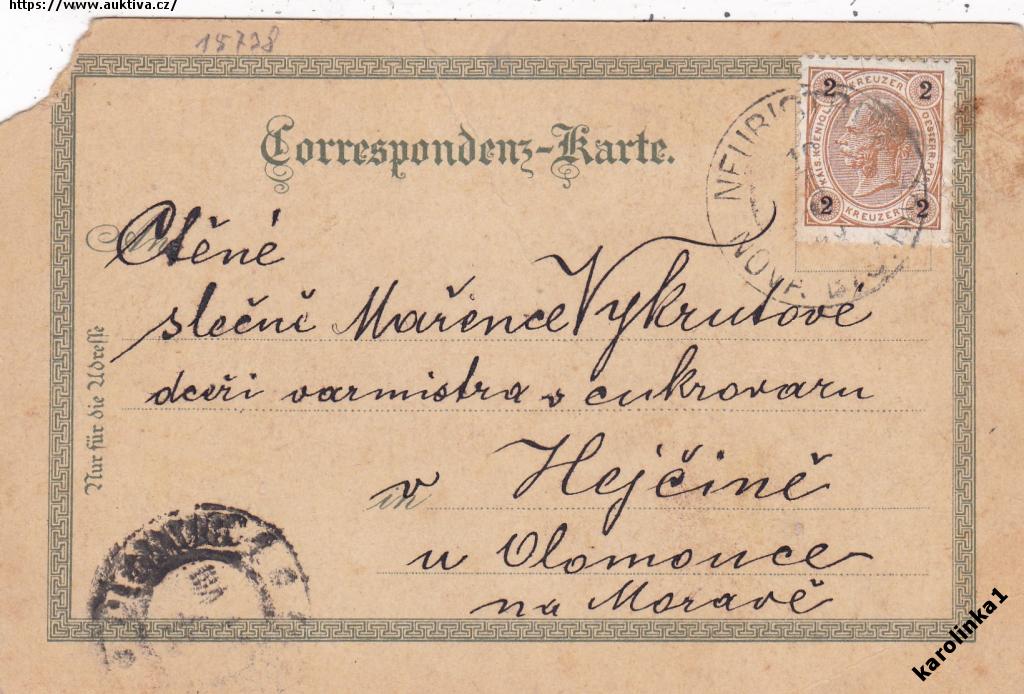 https://www.auktiva.cz/
15738
Correspondenz-Karte.
2 KREUZER 2
KAIS. KOENIGL. OESTERR. POST
2 KREUZER 2
NEUBIST
NOVA BYST
An
Ctěné
slečně Mařence Vykrutové
dceři varmistra v cukrovaru
v in Hejčíně
u Olomouce
na Moravě
Nur für die Adresse
karolinka1